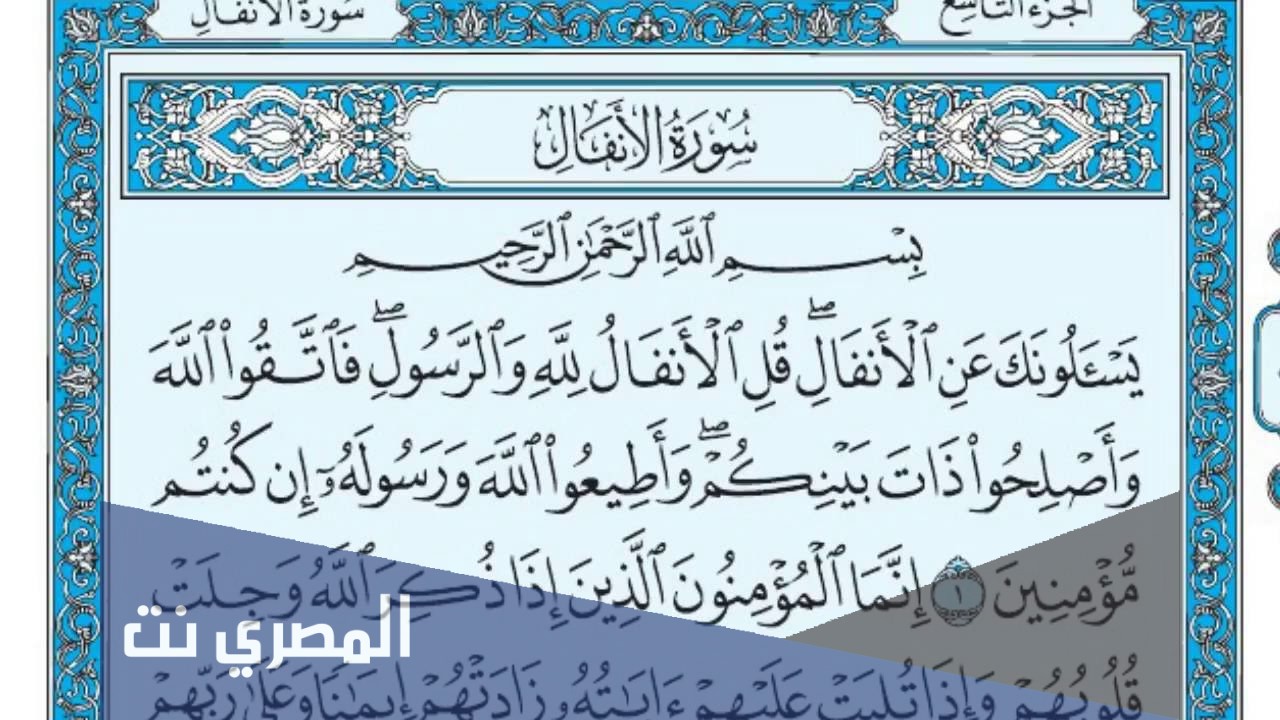 الجزء التاسع
سورة الأنفال
سُورَةُ الأَنفَالِ
بِسْمِ ٱللَّهِ ٱلرَّحْمَٰنِ ٱلرَّحِيمِ
يَسْـَٔلُونَكَ عَنِ ٱلْأَنفَالِۖ قُلِ ٱلْأَنفَالُ لِلَّهِ وَٱلرَّسُولِۖ فَٱتَّقُوا۟ ٱللَّهَ
وَأَصْلِحُوا۟ ذَاتَ بَيْنِكُمْۖ وَأَطِيعُوا۟ ٱللَّهَ وَرَسُولَهُۥٓ إِن كُنتُم
مُّؤْمِنِينَ ١ إِنَّمَا ٱلْمُؤْمِنُونَ ٱلَّذِينَ إِذَا ذُكِرَ ٱللَّهُ وَجِلَتْ
قُلُوبُهُمْ وَإِذَا تُلِيَتْ عَلَيْهِمْ ءَايَٰتُهُۥ زَادَتْهُمْ إِيمَٰنًا وَعَلَىٰ رَبِّهِمْ
المصري نت